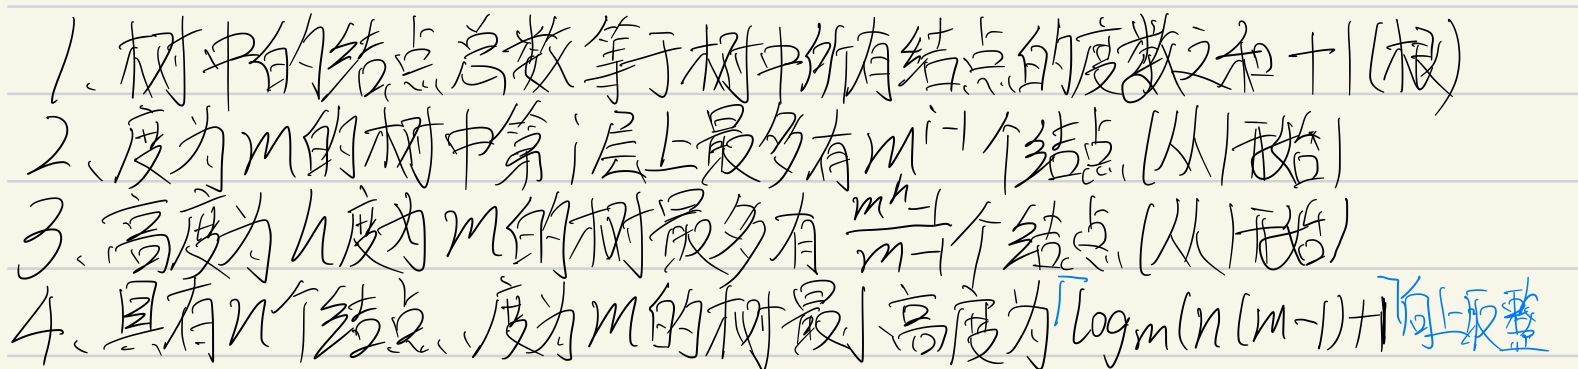 1、树中的结点总数等于树中所有结点的度数之和+1(根)
2、度为m的树中第i层上最多有m^{i-1}个结点(从1开始)
3、高度为h度为m的树最多有\frac{m^h-1}{m-1}个结点(从1开始)
4、具有n个结点、度为m的树最小高度为⌈log_m(n(m-1)+1⌉向上取整